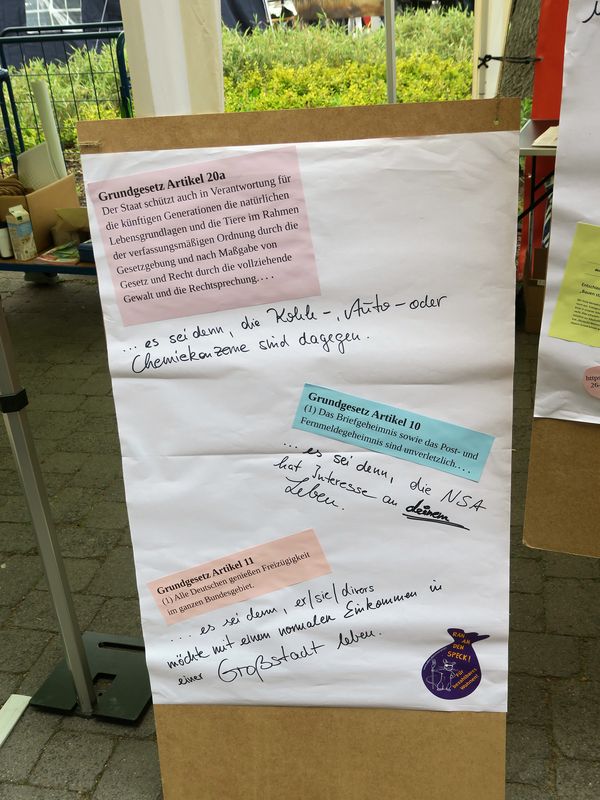 Grundgesetz Artikel 20a
Der Staat schützt auch in Verantwortung für
die künftigen Generationen die natürlichen
Lebensgrundlagen und die Tiere im Rahmen
der verfassungsmäßigen Ordnung durch die
Gesetzgebung und nach Maßgabe von
Gesetz und Recht durch die vollziehende
Gewalt und die Rechtsprechung....
... es sei denn, die Kohle-, Auto- oder
Chemiekonzerne sind dagegen.
Grundgesetz Artikel 10
(1) Das Briefgeheimnis sowie das Post- und
Fernmeldegeheimnis sind unverletzlich....
... es sei denn, die NSA
hat Interesse an deinem
Leben.
Grundgesetz Artikel 11
(1) Alle Deutschen genießen Freizügigkeit
im ganzen Bundesgebiet.
... es sei denn, er/sie/divers
möchte mit einem normalen Einkommen in
einer Großstadt leben.
RAN
AN
DEN
SPECK!
Für
bezahlbares
Wohnen!